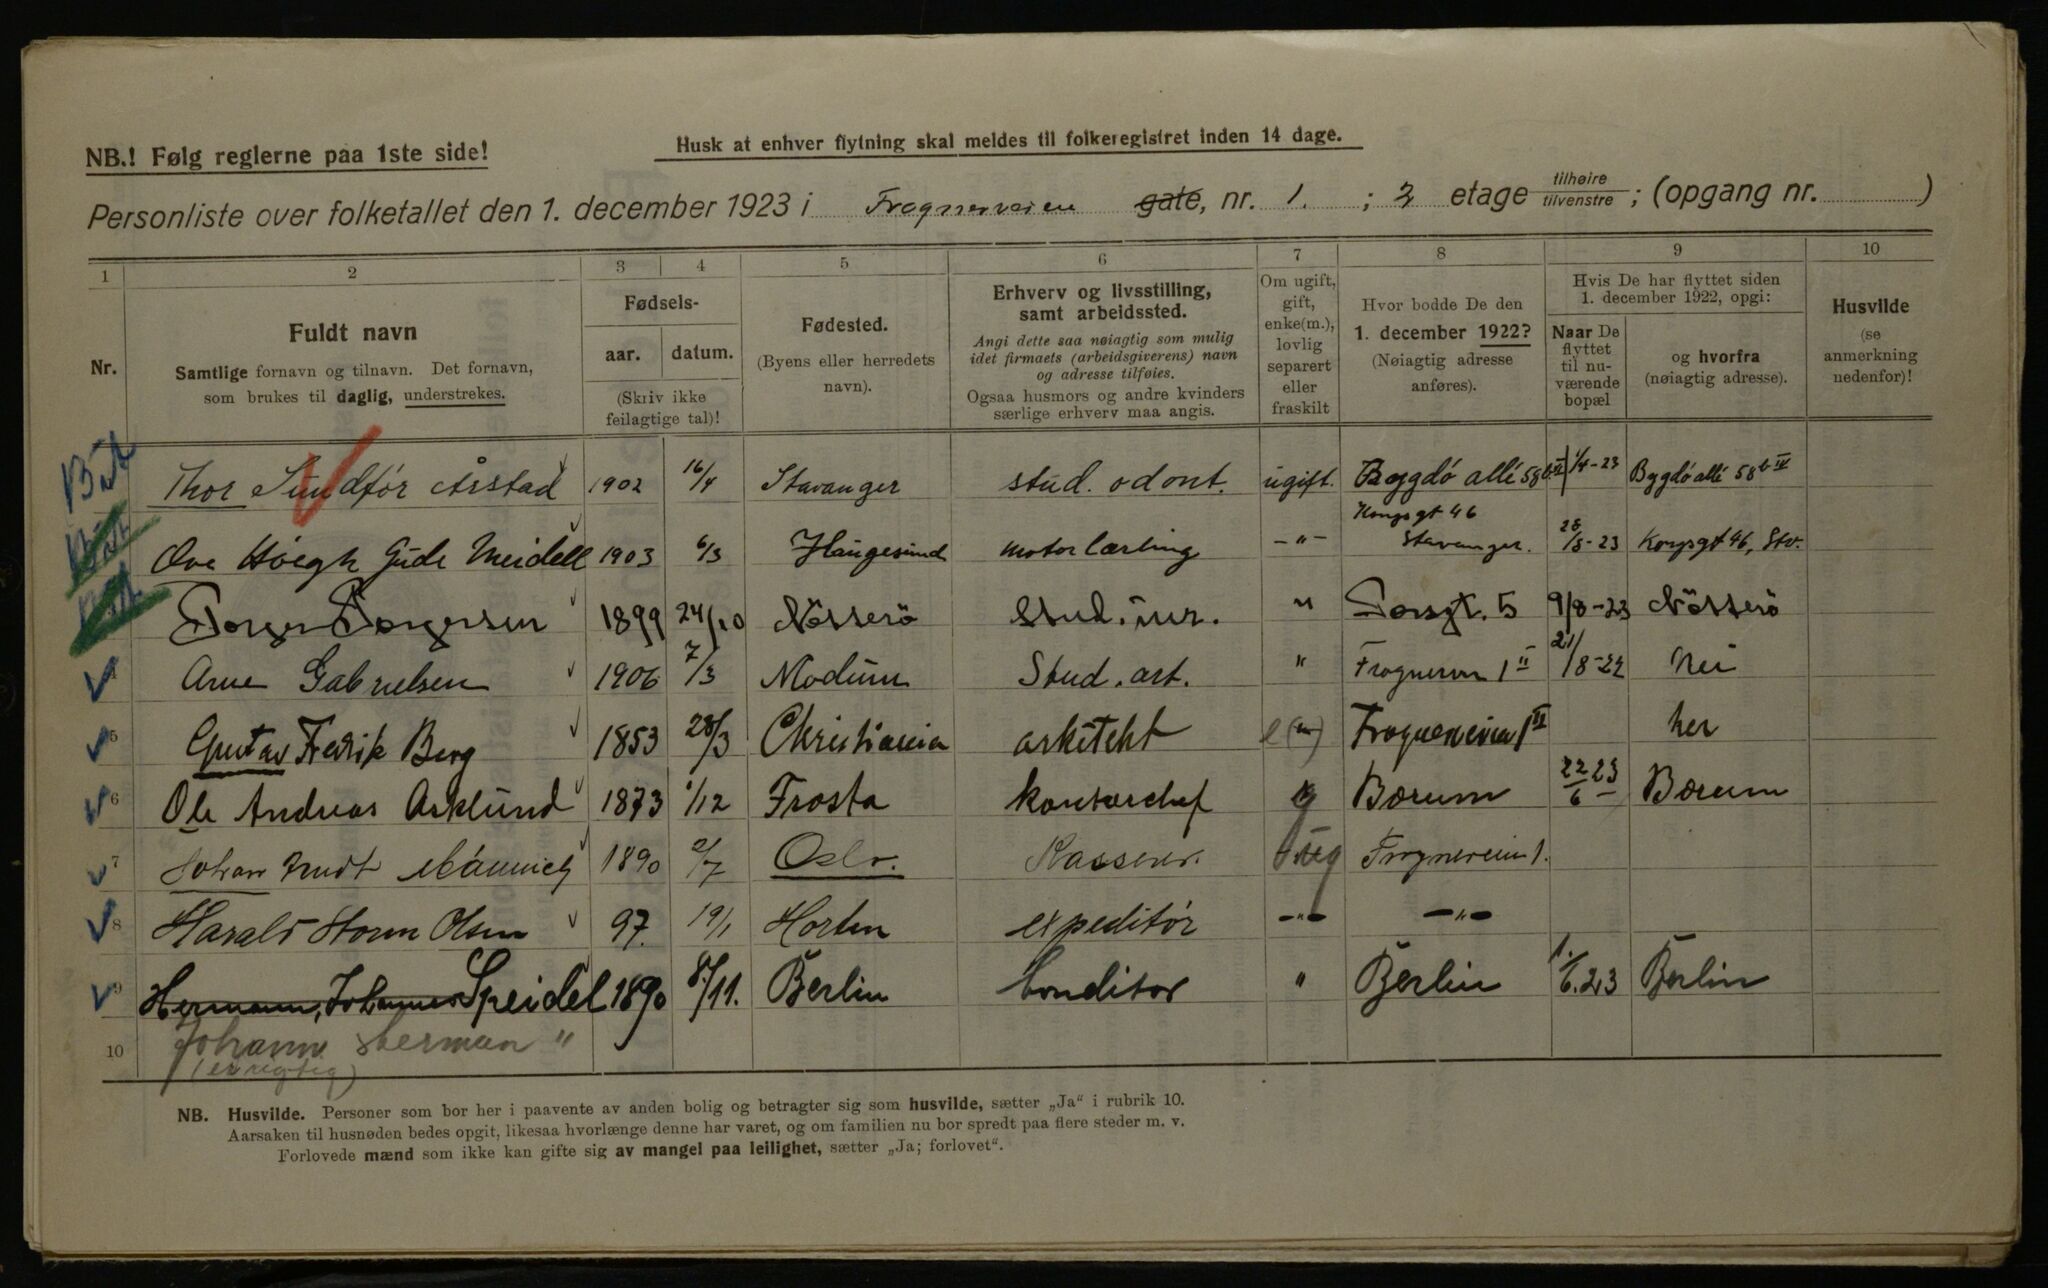 NB.! Følg reglerne paa 1ste side!
Husk at enhver flytning skal meldes til folkeregistret inden 14 dage.
Personliste over folketallet den 1. december 1923 i Frognerveien gate, nr. 1. ; 2 etage tilhøire tilvenstre ; (opgang nr. )
1 2 3 4 5 6 7 8 9 10
Nr.
Fuldt navn
Samtlige fornavn og tilnavn. Det fornavn,
som brukes til daglig, understrekes.
Fødsels-
aar. datum.
(Skriv ikke
feilagtige tal)!
Fødested.
(Byens eller herredets
navn).
Erhverv og livsstilling,
samt arbeidssted.
Angi dette saa nøiagtig som mulig
idet firmaets (arbeidsgiverens) navn
og adresse tilføies.
Ogsaa husmors og andre kvinders
særlige erhverv maa angis.
Om ugift,
gift,
enke(m.),
lovlig
separert
eller
fraskilt
Hvor bodde De den
1. december 1922?
(Nøiagtig adresse
anføres).
Hvis De har flyttet siden
1. december 1922, opgi:
Naar De
flyttet
til nu-
værende
bopæl
og hvorfra
(nøiagtig adresse).
Husvilde
(se
anmerkning
nedenfor)!
Thor Sundför Årstad 1902 16/4 Stavanger stud. odont. ugift. Bygdö allé 58b IV 1/4-23 Bygdö allé 58b IV
Kongsgt 46
Ove Höegh Gude Meidell 1903 6/3 Haugesund motorlærling -"- Stavanger. 28/8-23 Kongsgt 46, Stv.
Torger Torgersen 1899 24/10 Nötterö Stud. jur. " 9/8-23 Nötterö
Arne Gabrielsen 1906 7/3 Modum Stud. art. " 1 II 21/8-22 Nei
5 Gustav Fredrik Berg 1853 28/3 Christiania arkitekt e(m) Frognerveien 1 II her
6 Ole Andreas Asklund 1873 1/12 Frosta kontorchef g Bærum 22/6 23 Bærum
7 Johan 1890 2/7 Oslo. Kasserer. ug Frognerveien 1.
8 Harald Storm Olsen 97. 19/1 Horten expeditör -"- -"-
9 Hermann, Johannes Speidel 1890 8/11. Berlin Conditor " Berlin 1/6.23 Berlin
10 Johann Herman "
(er rigtig)
NB. Husvilde. Personer som bor her i paavente av anden bolig og betragter sig som husvilde, sætter „Ja“ i rubrik 10.
Aarsaken til husnøden bedes opgit, likesaa hvorlænge denne har varet, og om familien nu bor spredt paa flere steder m. v.
Forlovede mænd som ikke kan gifte sig av mangel paa leilighet, sætter „Ja; forlovet“.